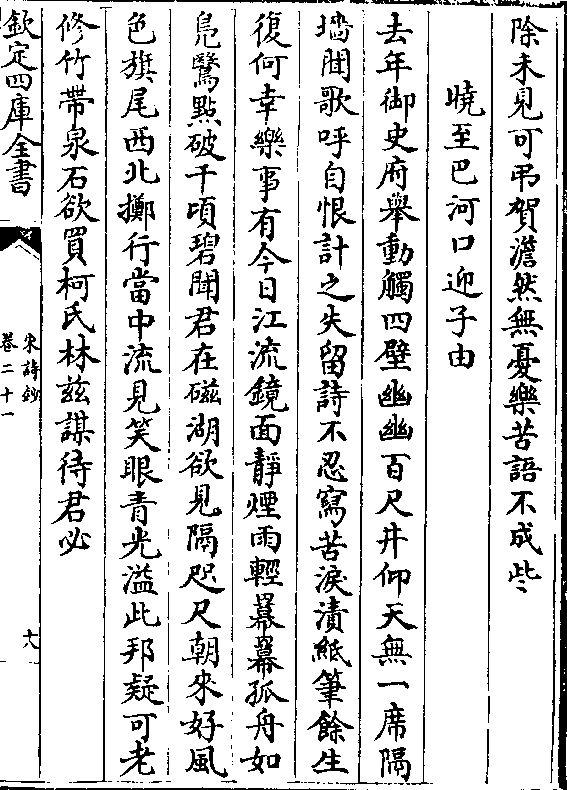 除未見可弔賀澹然無憂樂苦語不成些
曉至巴河口迎子由
去年御史府舉動觸四壁幽幽百尺井仰天無一席隔
墻聞歌呼自恨計之失留詩不忍寫苦淚漬紙筆餘生
復何幸樂事有今日江流鏡面靜煙雨輕羃羃孤舟如
鳧鷖點破千頃碧聞君在磁湖欲見隔咫尺朝來好風
色旗尾西北擲行當中流見笑眼青光溢此邦疑可老
修竹帶泉石欲買柯氏林茲謀待君必
欽定四庫全書
宋詩鈔
卷二十一
十八